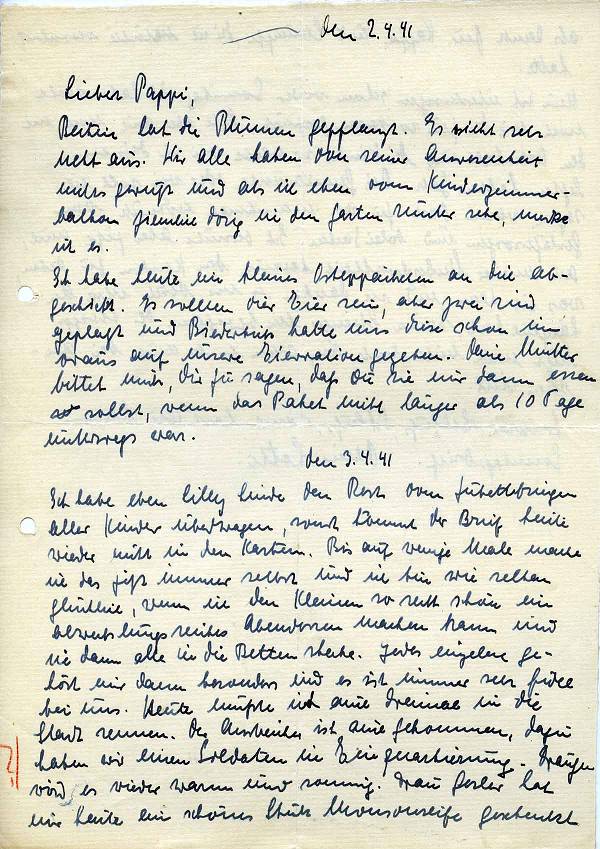 den 2.4.41
Lieber Pappi,
hat die Blumen gepflanzt. Es sieht sehr
nett aus. Wir alle haben von seiner Anwesenheit
nichts gewußt und als ich eben vom Kinderzimmer-
balkon ziemlich dösig in den Garten runter sehe, merke
ich es.
Ich habe heute ein kleines Osterpäckchen an Dich ab-
geschickt. Es sollen vier Eier sein, aber zwei sind
geplatzt und hatte uns diese schon im
voraus auf unsere Eierration gegeben. Deine Mutter
bittet mich, Dir zu sagen, daß Du sie nur dann essen
sollst, wenn das Paket nicht länger als 10 Tage
unterwegs war.
den 3.4.41
Ich habe eben Cilly Linde den Rest vom Zubettbringen
aller Kinder übertragen, sonst kommt der Brief heute
wieder nicht in den Kasten. Bis auf wenige Male mache
ich das jetzt immer selbst und ich bin wie selten
glücklich, wenn ich den Kleinen so recht schön ein
abwechslungsreiches Abendessen machen kann und
sie dann alle in die Betten stecke. Jedes einzelne ge-
hört mir dann besonders und es ist immer sehr fidel
bei uns. Heute mußte ich auch dreimal in die
Stadt rennen. Der ist auch gekommen, dazu
haben wir einen Soldaten in Einquartierung. Draußen
wird es wieder warm und sonnig. Frau hat
mir heute ein schönes Stück geschenkt